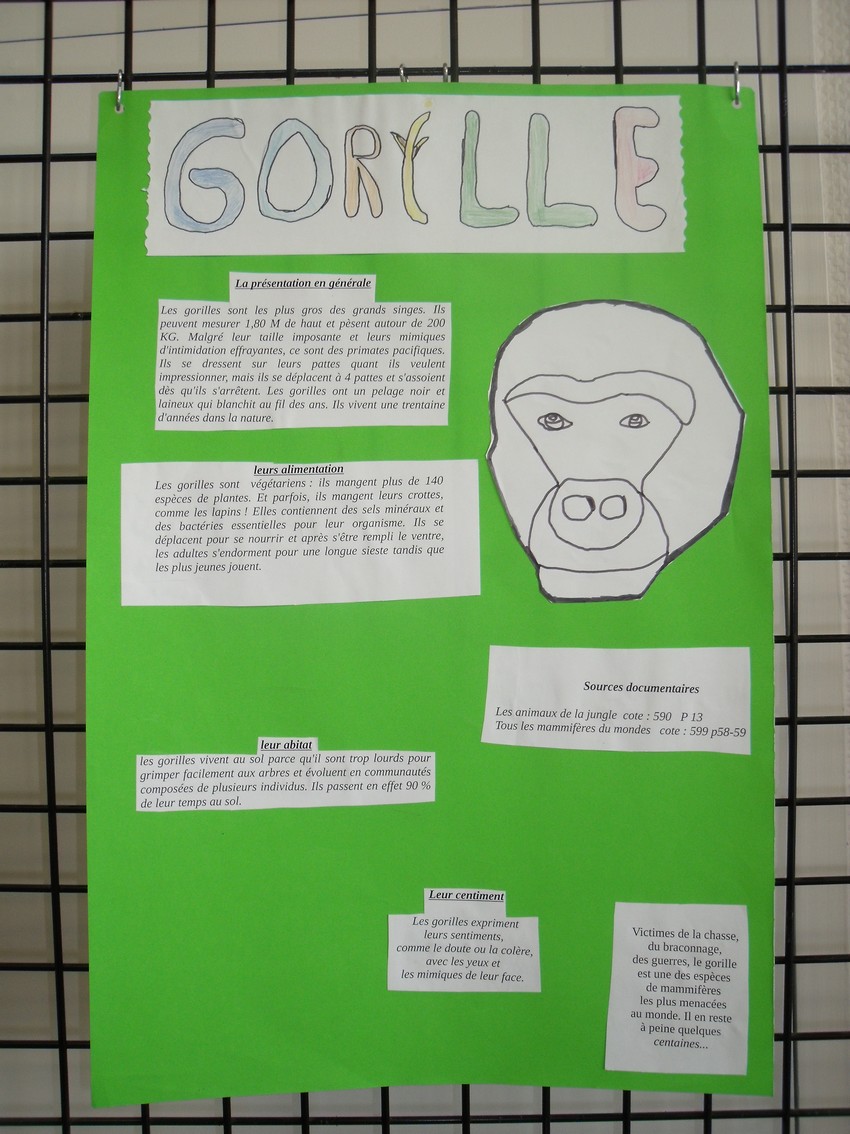 GORILLE
La présentation en générale
Les gorilles sont les plus gros des grands singes. Ils
peuvent mesurer 1,80 M de haut et pèsent autour de 200
KG. Malgré leur taille imposante et leurs mimiques
d'intimidation effrayantes, ce sont des primates pacifiques.
Ils se dressent sur leurs pattes quant ils veulent
impressionner, mais ils se déplacent à 4 pattes et s'assoient
dès qu'ils s'arrêtent. Les gorilles ont un pelage noir et
laineux qui blanchit au fil des ans. Ils vivent une trentaine
d'années dans la nature.
leurs alimentation
Les gorilles sont végétariens : ils mangent plus de 140
espèces de plantes. Et parfois, ils mangent leurs crottes,
comme les lapins ! Elles contiennent des sels minéraux et
des bactéries essentielles pour leur organisme. Ils se
déplacent pour se nourrir et après s'être rempli le ventre,
les adultes s'endorment pour une longue sieste tandis que
les plus jeunes jouent.
Sources documentaires
Les animaux de la jungle cote : 590 P 13
Tous les mammifères du mondes cote : 599 p58-59
leur abitat
les gorilles vivent au sol parce qu'il sont trop lourds pour
grimper facilement aux arbres et évoluent en communautés
composées de plusieurs individus. Ils passent en effet 90 %
de leur temps au sol.
Leur centiment
Les gorilles expriment
leurs sentiments,
comme le doute ou la colère,
avec les yeux et
les mimiques de leur face.
Victimes de la chasse,
du braconnage,
des guerres, le gorille
est une des espèces
de mammifères
les plus menacées
au monde. Il en reste
à peine quelques
centaines...